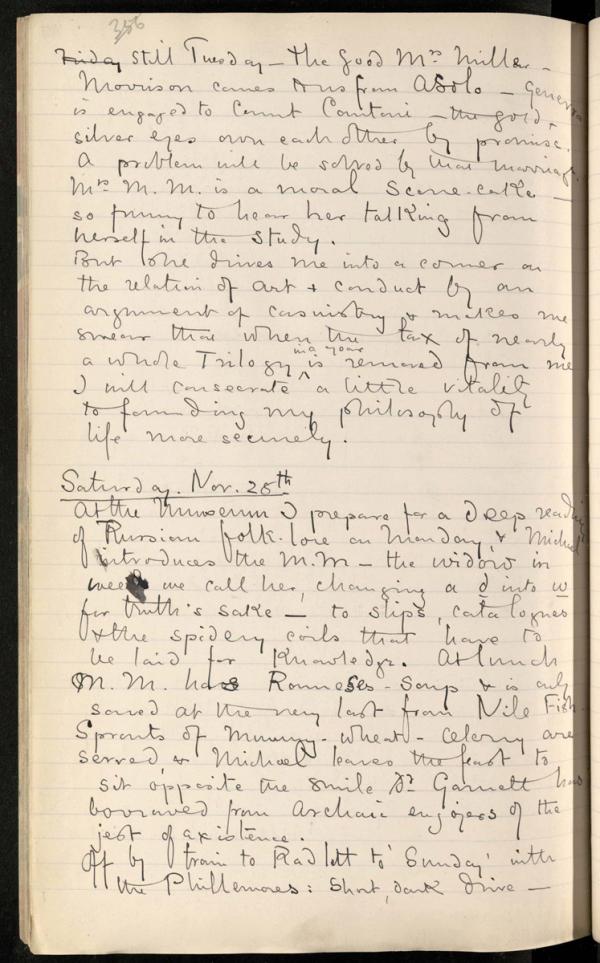 356
Friday Still Tuesday – the good Mrs Miller –
Morrison comes to us from Asolo –
is engaged to Count Contini – the gold,
silver eyes own each other by promise.
A problem will be solved by that marriage.
Mrs M. M. is a moral Scene-cake –
so funny to hear her talking from
herself in the study.
But she drives me into a corner on
the relation of art & conduct by an
argument of casuistry & makes me
swear that when the tax of nearly
in a year
a whole Trilogy is removed from me
I will consecrate a little vitality
to founding my philosophy of
life more securely.
Saturday. Nov. 28th
At the Museum I prepare for a deep reading
of Russian folk-lore on Monday, & Michael
introduces the M.M – the widow in
weed we call her, changing a d into w
for truth's sake – to slips, catalogues
& the spidery coils that have to
be laid for Knowledge. At lunch
M. M. has Rameses-Soup & is only
saved at the very last from Nile Fish.
Sprouts of Mummy-wheat-celery are
served, & Michael leaves the feast to
sit opposite the smile Dr Garnett has
borrowed from Archaic enjoyers of the
jest of existence.
Off by train to Radlett to 'Sunday' with
the Phillemores: Short, dark drive –